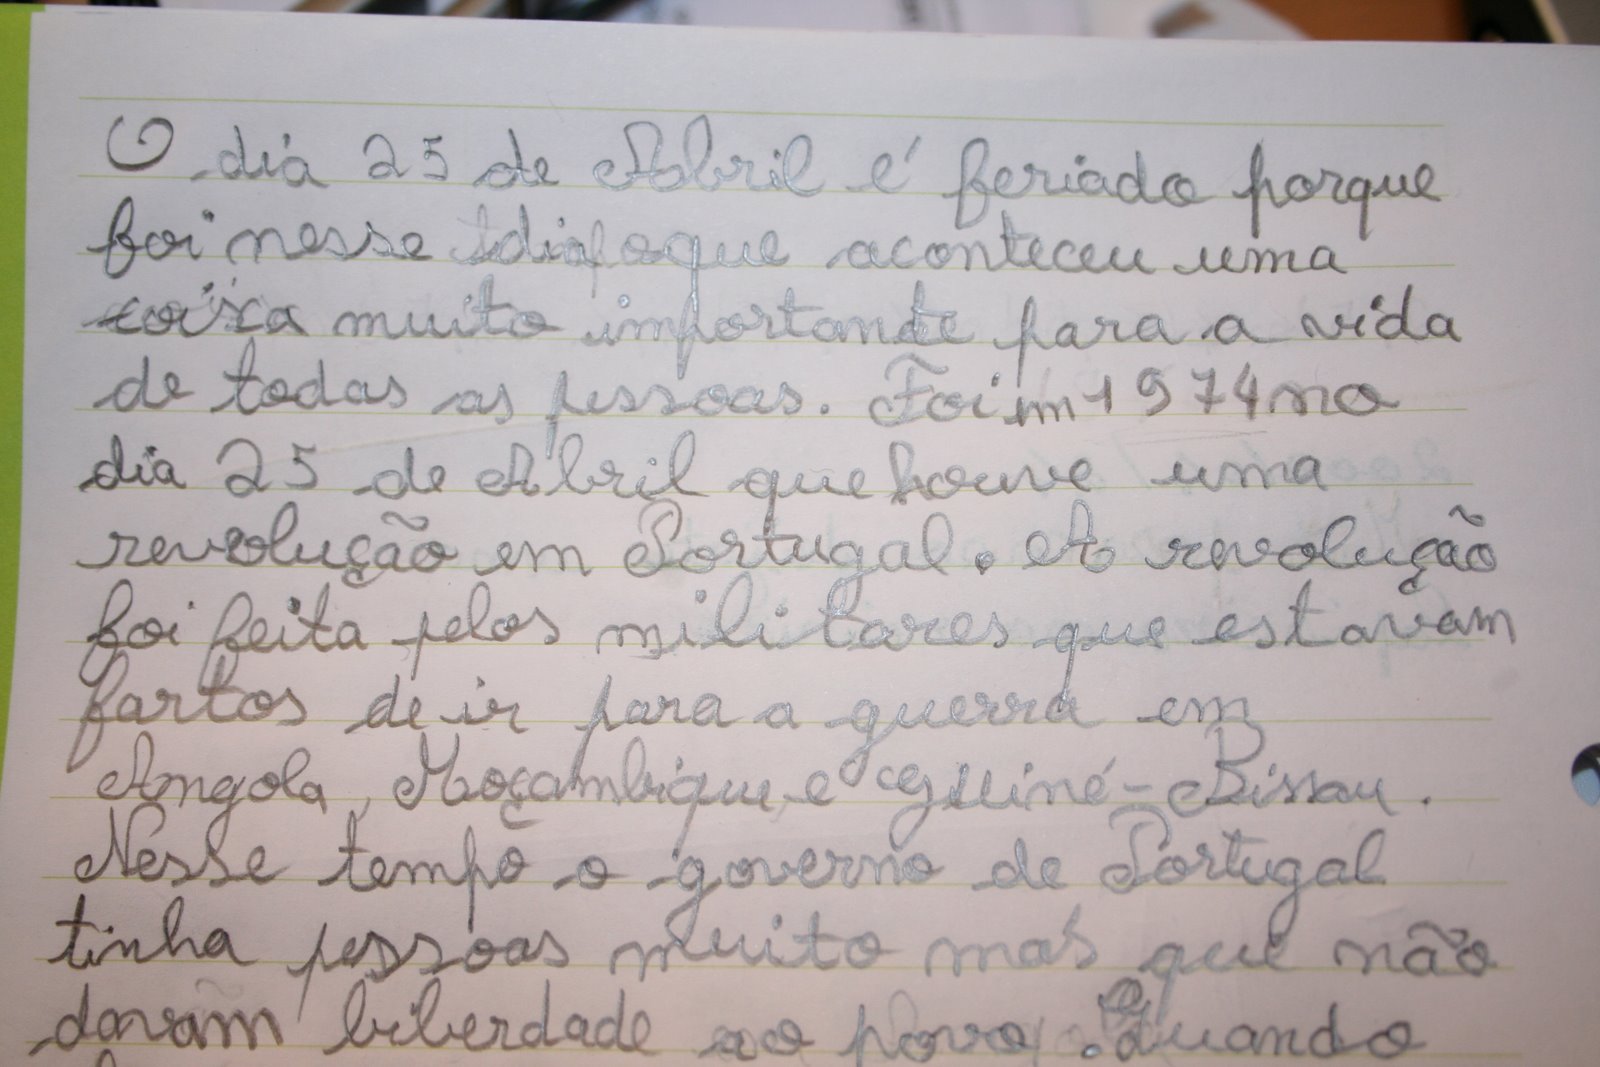 O dia 25 de Abril é feriado porque
foi nesse dia que aconteceu uma
coisa muito importante para a vida
de todas as pessoas. Foi em 1974 no
dia 25 de Abril que houve uma
revolução em Portugal. A revolução
foi feita pelos militares que estavam
fartos de ir para a guerra em
Angola, Moçambique e Guiné-Bissau.
Nesse tempo o governo de Portugal
tinha pessoas muito más que não
davam liberdade ao povo. Quando